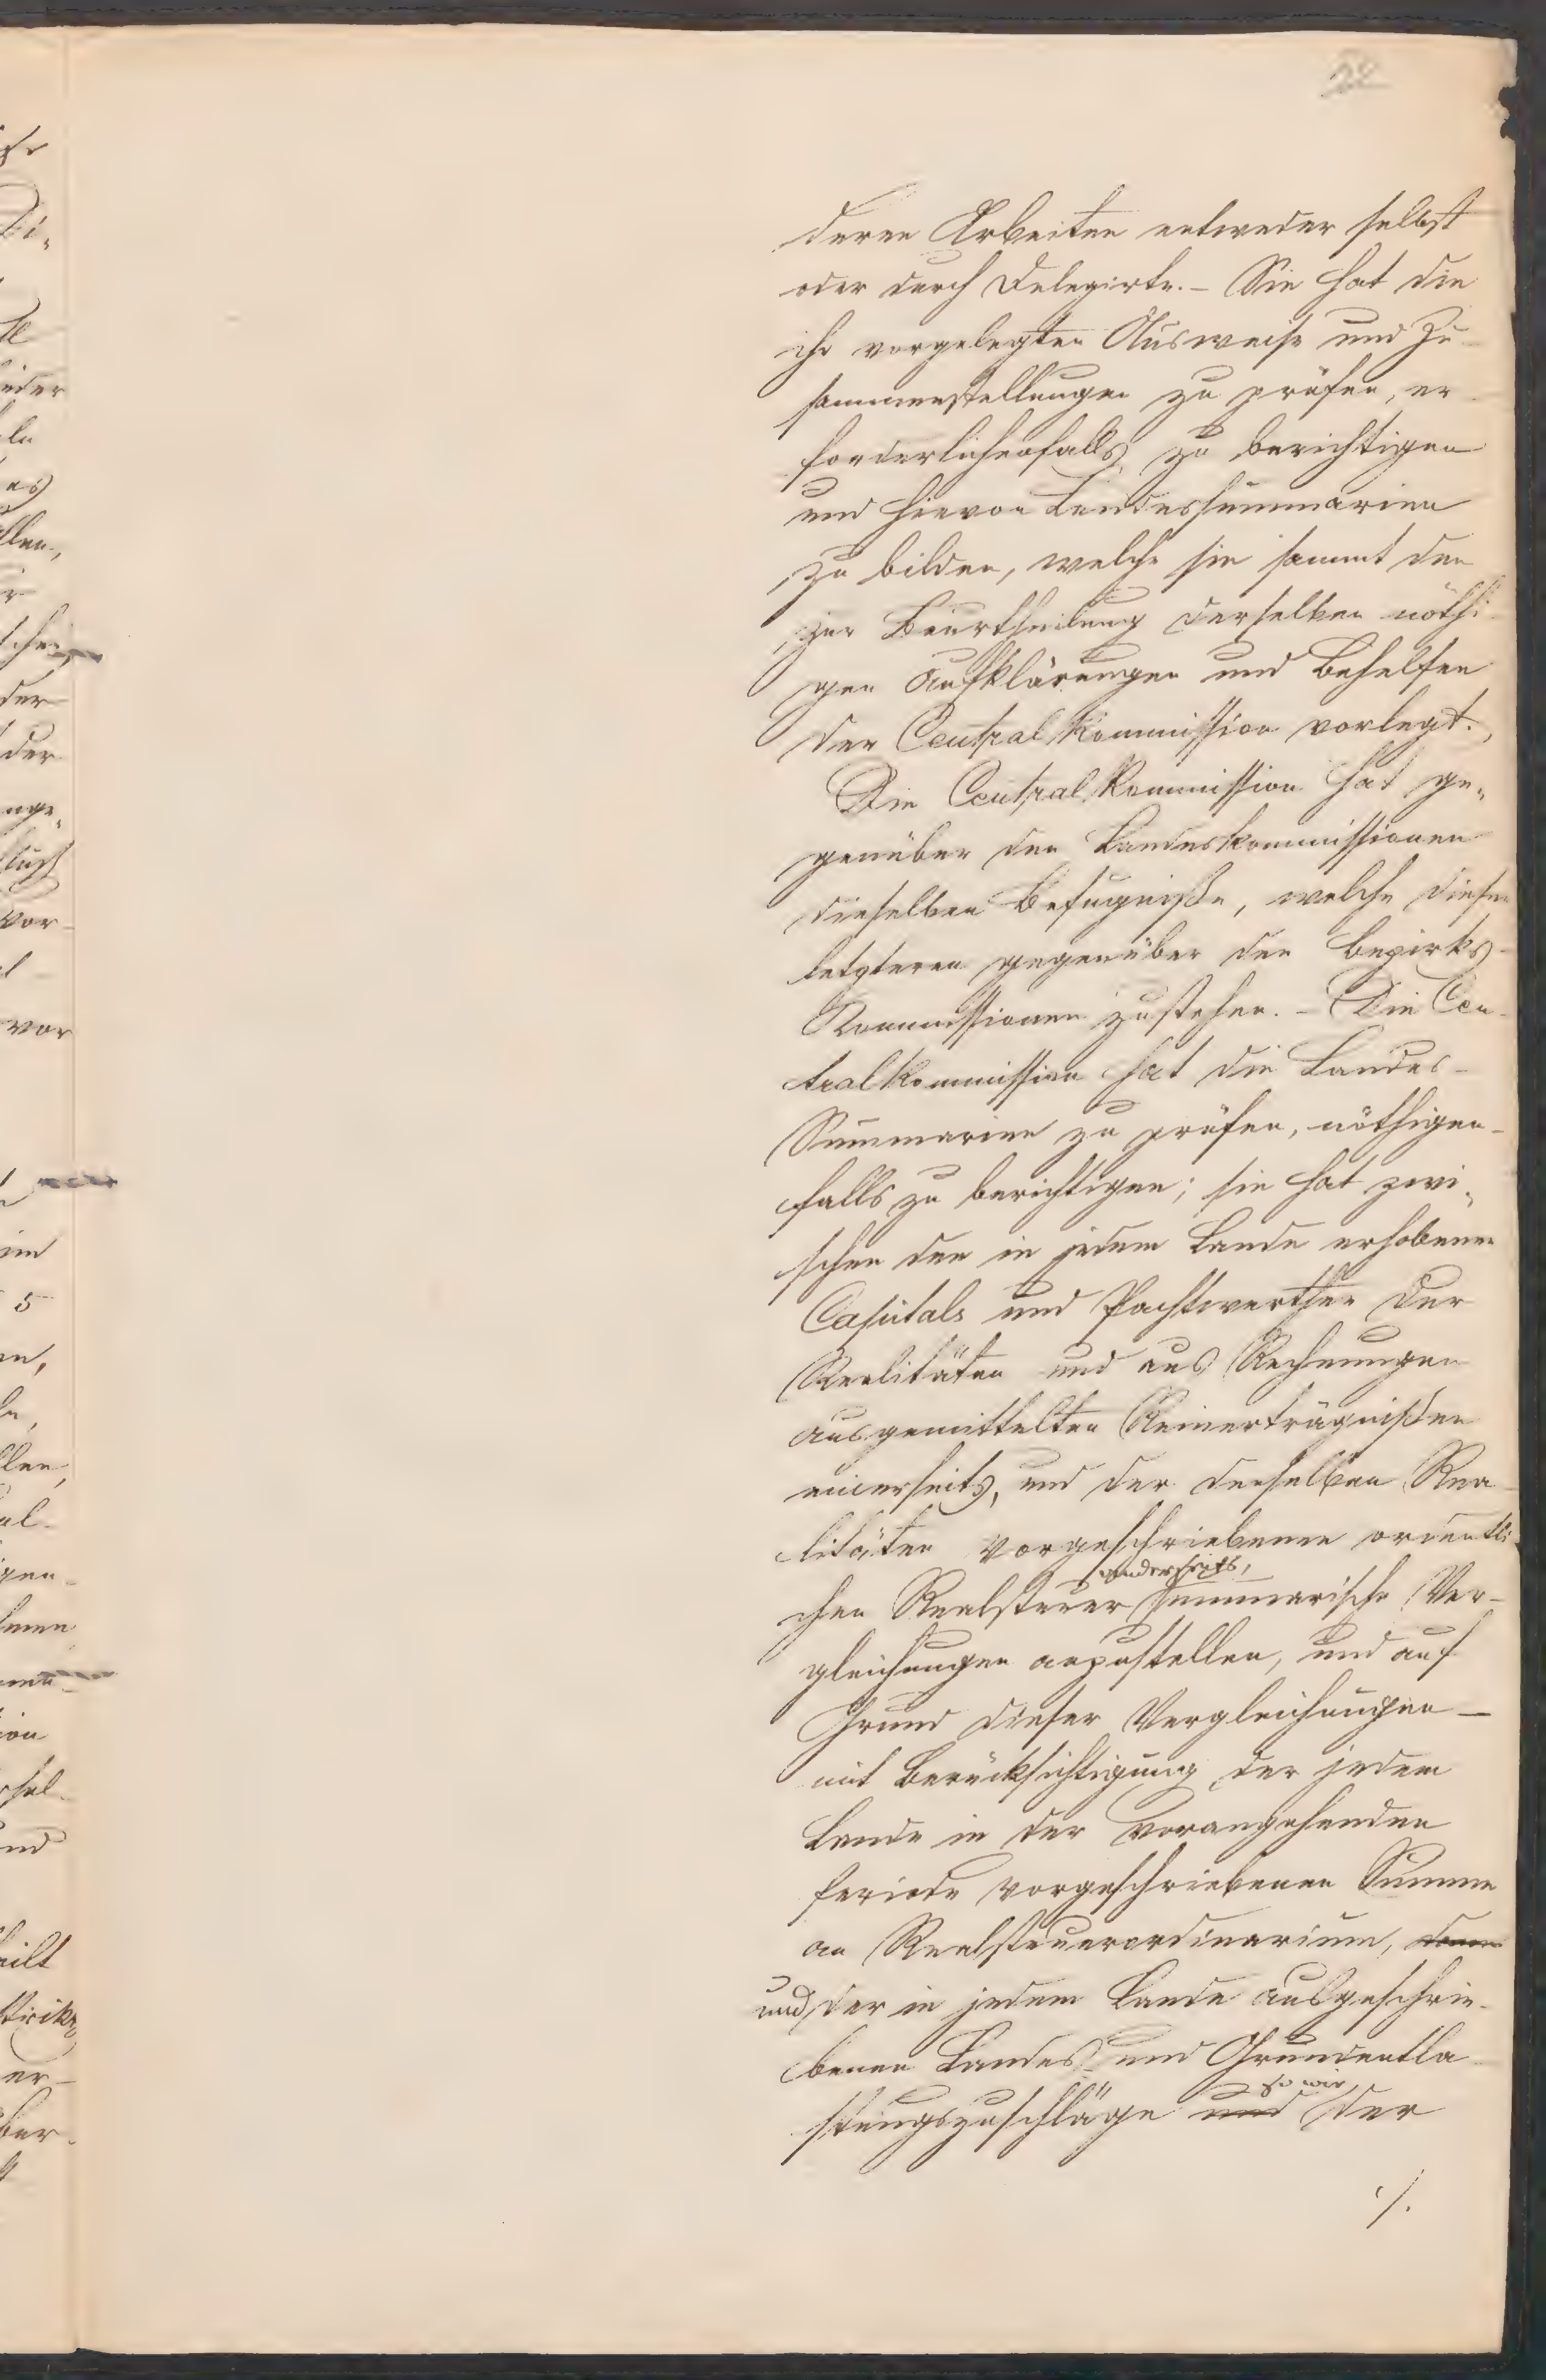 22
deren Arbeiten entweder selbst
oder durch Delegirte. – Sie hat die
ihr vorgelegten Ausweise und Zu-
sammenstellungen zu prüfen, er-
forderlichenfalls zu berichtigen
und hievon Landessummarien
zu bilden, welche sie sammt den
zur Beurtheilung derselben nöthi-
gen Aufklärungen und Behelfen
der Central Kommission vorlegt.
Die Central Kommission hat ge-
genüber den Landeskommissionen
dieselben Befugniße, welche diesen
letzteren gegenüber den Bezirks-
Kommissionen zustehen. – Die Cen-
tral Kommission hat die Landes-
Summarien zu prüfen, nöthigen-
falls zu berichtigen; sie hat zwi-
schen den in jedem Lande erhobenen
Capitals und Pachtwerthen der
Realitäten und aus Rechnungen
ausgemittelten Reinerträgnißen
einerseits, und der denselben Rea-
litäten vorgeschriebenen ordentli-
andererseits,
chen Realsteuer summarische Ver-
gleichungen anzustellen, und auf
Grund dieser Vergleichungen –
mit Berücksichtigung der jedem
Lande in der vorangehenden
Periode vorgeschriebenen Summe
an Realsteuerordinarium, dann
und der in jedem Lande ausgeschrie-
benen Landes- und Grundentla-
so wie
stungszuschläge und der
./.